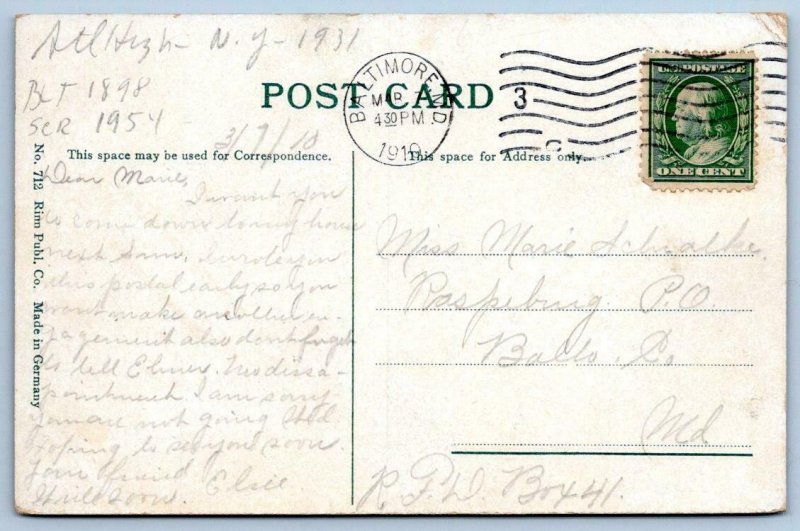 Atl High - N.Y - 1931
BLT 1898
SCR 1954 -
POST CARD
BALTIMORE MD
MAR 7
4 30 PM
1910
3
U.S. POSTAGE
ONE CENT
3/7/10
This space may be used for Correspondence.
This space for Address only.
No. 712 Rinn Publ. Co. Made in Germany
Dear Marie,
I want you
to come down to my house
next Sun, I wrote you
this postal early so you
wont make another en-
gagement also dont forget
to tell Elmer. No disap-
pointment. I am sorry
you are not going
Hoping to see you soon.
Your friend Elsie
Write soon.
Miss Marie
Raspeburg P.O.
Balto. Co.
Md
R.F.D. Box 41.